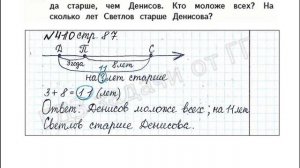 да старше, чем Денисов. Кто моложе всех? На
сколько лет Светлов старше Денисова?
№410 стр. 87
Д П С
3 года 8 лет
11
на ? лет старше
3 + 8 = 11 (лет)
Ответ: Денисов моложе всех; на 11 лет
Светлов старше Денисова.